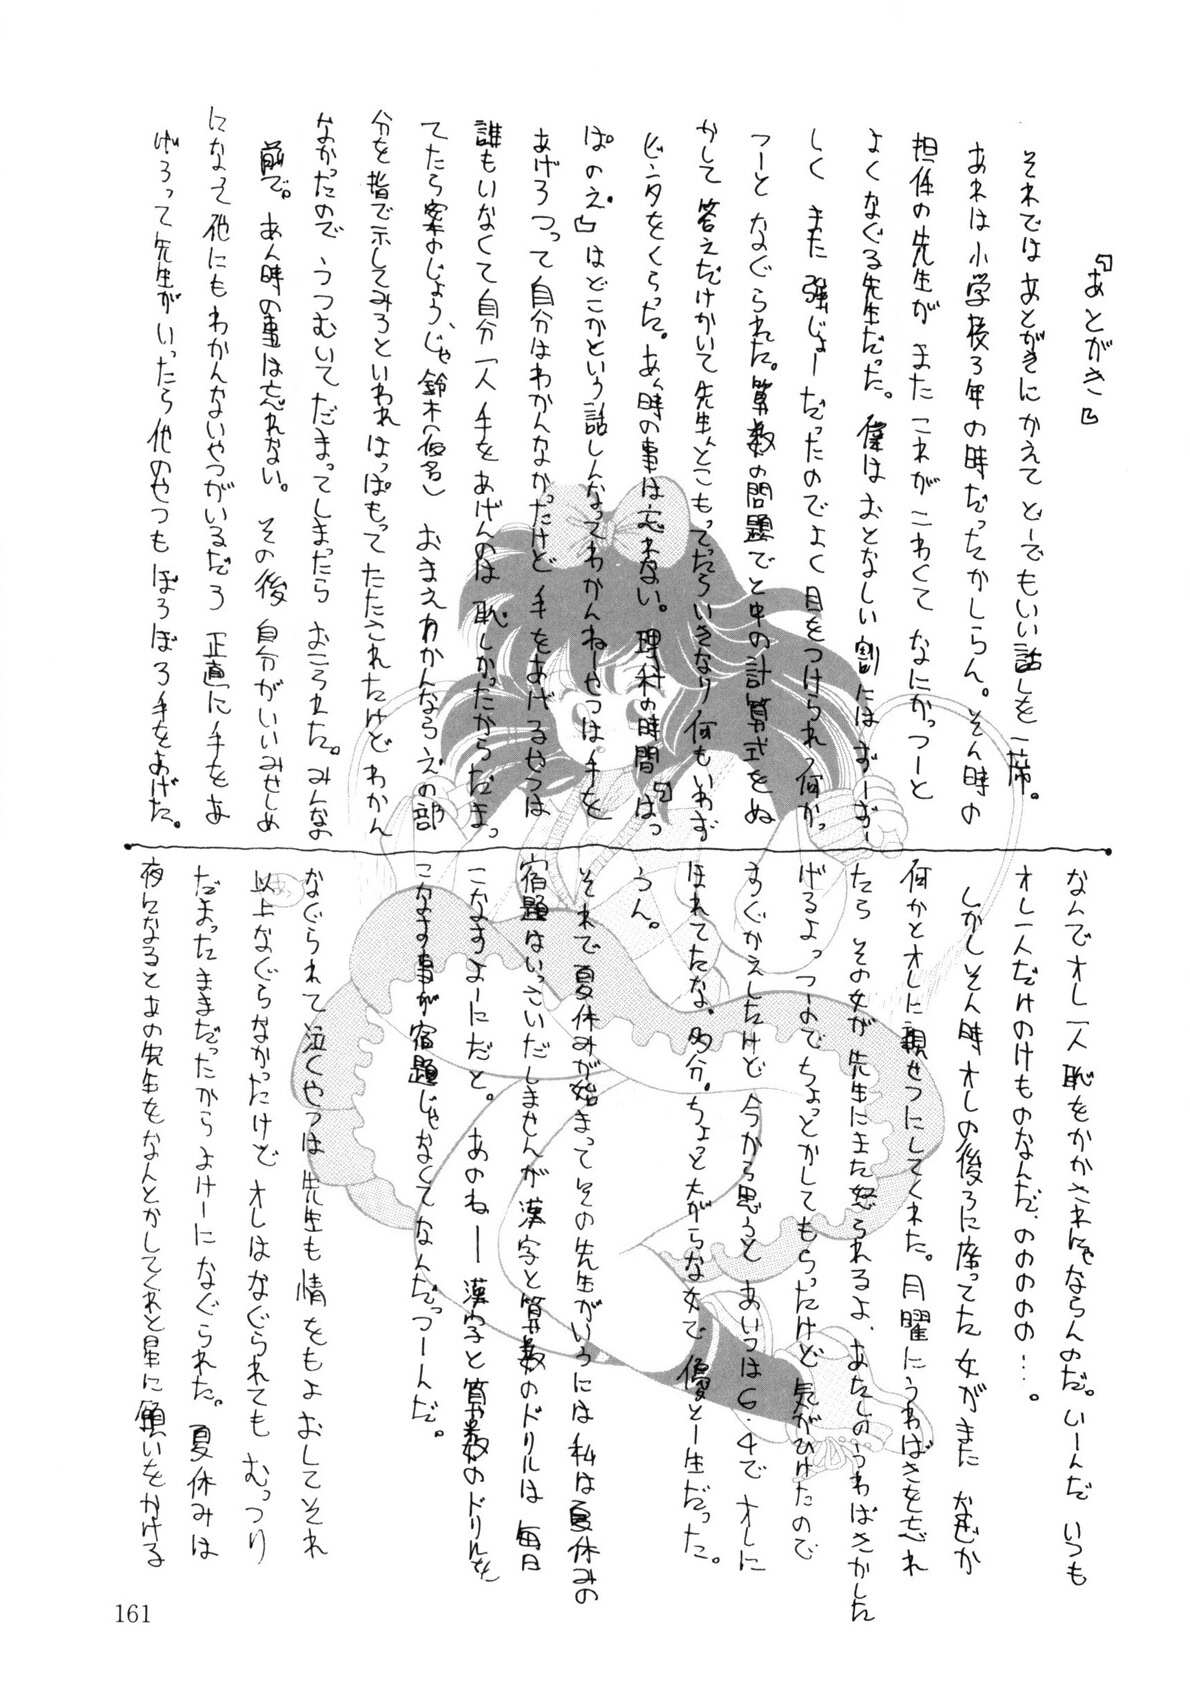 『あとがき』
それではあとがきにかえてどーでもいい話しを一席。
あれは小学校3年の時だったかしらん。そん時の
担任の先生がまたこれがこわくてなにかっつーと
よくなぐる先生だった。僕はおとなしい割にはずーずー
しくまた強じょーだったのでよく目をつけられ何かっ
つーとなぐられた。算数の問題でと中の計算式をぬ
かして答えだけかいて先生んとこもってったらいきなり何もいわず
ビンタをくらった。あん時の事は忘れない。理科の時間『はっ
ぱのえ』はどこかという話しんなってわかんねーやつは手を
あげろつって自分はわかんなかったけど手をあげるやつは
誰もいなくて自分一人手をあげんのは恥しかったからだまっ
てたら案のじょう、じゃ鈴木(仮名)おまえわかんならえの部
分を指で示してみろといわれはっぱもってたたされたけどわかん
なかったのでうつむいてだまってしまったらおこられた。みんなの
前で。あん時の事は忘れない。その後自分がいいみせしめ
になって他にもわかんないやつがいるだろ正直に手をあ
げろって先生がいったら他のやつもぽろぽろ手をあげた。
なんでオレ一人恥をかかされにゃならんのだ。いーんだいつも
オレ一人だけのけものなんだ、のののの…。
しかしそん時オレの後ろに座ってた女がまたなぜか
何かとオレに親せつにしてくれた。月曜にうわばきを忘れ
たらその女が先生にまた怒られるよ、あたしのうわばきかした
げるよっつーのでちょっとかしてもらったけど気がひけたので
すぐかえしたけど今から思うとあいつは6.4でオレに
ほれてたな、多分。ちょっと大がらな女で優とー生だった。
うん。
それで夏休みが始まってその先生がいうには私は夏休みの
宿題はいっさいだしませんが漢字と算数のドリルは毎日
こなすよーにだと。あのねー漢字と算数のドリルを
こなす事が宿題じゃなくてなんだっつーんだ。
なぐられて泣くやつは先生も情をもよおしてそれ
以上なぐらなかったけどオレはなぐられてもむっつり
だまったままだったからよけーになぐられた。夏休みは
夜になるとあの先生をなんとかしてくれと星に願いをかける
あっ
161